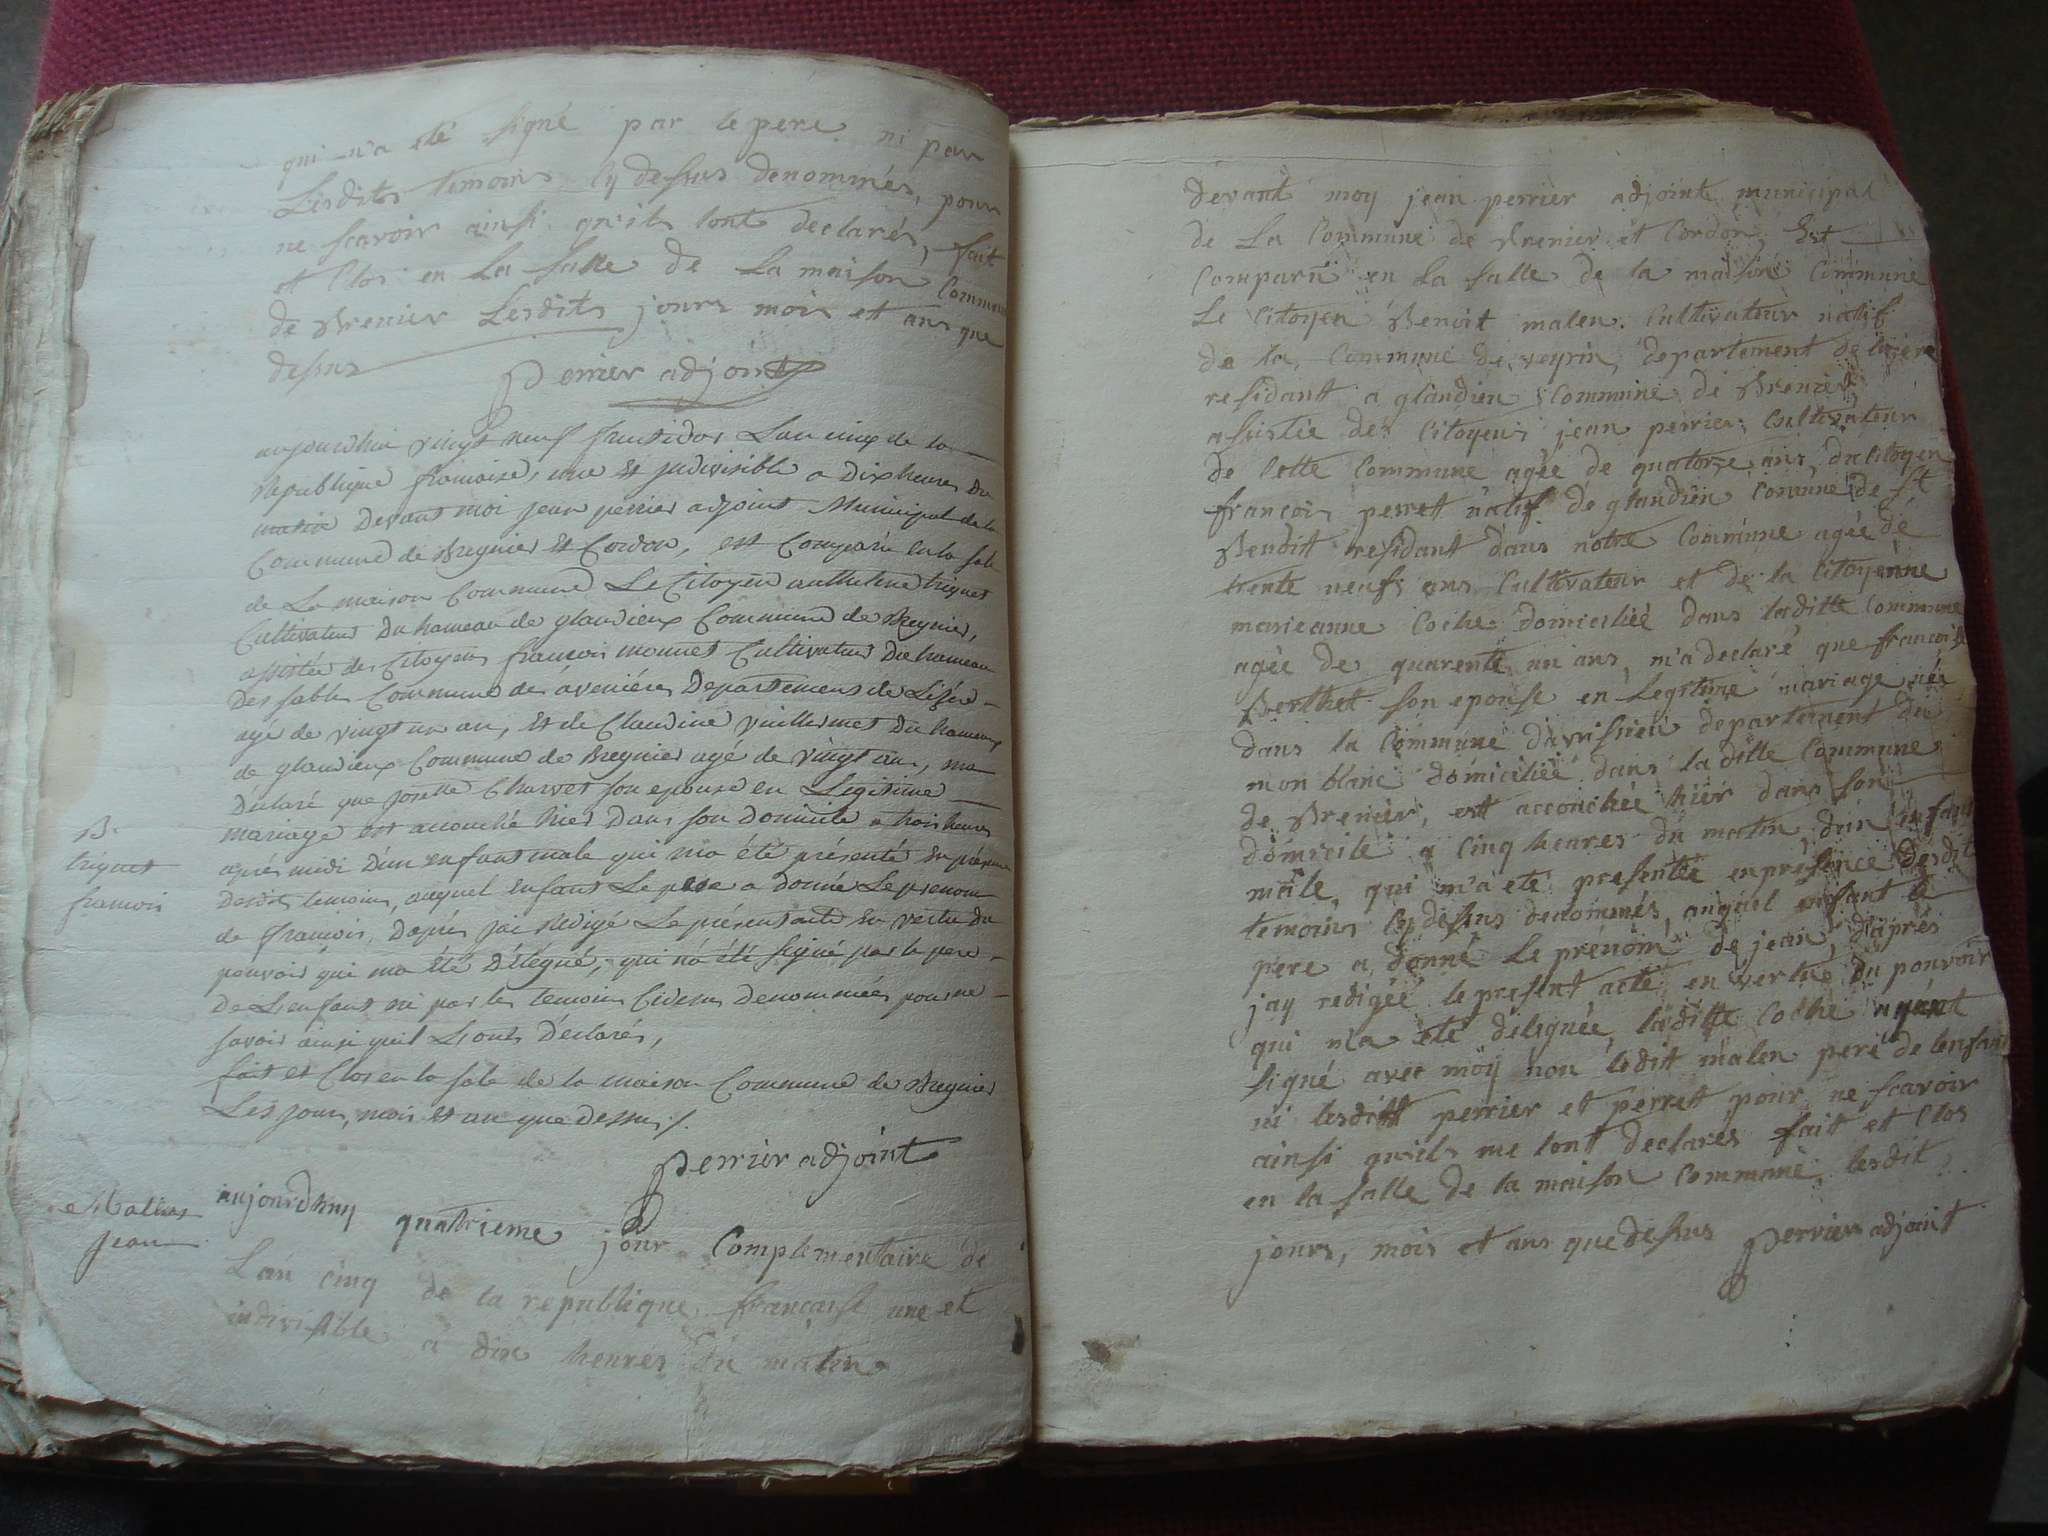 qui n'a eté signé par le pere ni par
Lesdits temoins cy dessus denommés, pour
ne scavoir ainsi qu'ils lont declarés, fait
et Clos en La salle de La maison Commune
de Brenier Lesdits jours mois et ans que
dessus
Perrier adjoint
aujourdhui vingt neuf fructidor Lan cinq de la
Republique francaise, une et indivisible a Dix heures du
matin devant moi jean perrier adjoint Municipal de la
Commune de Bregnier Et Cordon, est Comparu en la sale
de La maison Commune Le Citoyen anthelme triquet
Cultivateur Du hameau de glandieux Commune de Bregnier,
assistée des Citoyens francois monnet Cultivateur Du hameau
Des sables Commune des avenières Departement de Lisère
agé de vingt un an, et de Claudine vuillermet Du hameau
de glandieux Commune de Bregnier agé de vingt ans, ma
Declaré que josette Charvet son epouse en Legitime
mariage est accouché hier Dans son Domicile a trois heures
après midi D'un enfant male qui ma été présenté En présence
Desdits temoins, auquel Enfant Le pere a donné Le prenom
de francois, Daprès jai Redigé Le présent acte En vertu du
pouvoir qui ma été Délégué, qui n'a été signé par le pere
De Lenfant ni par les temoins Cidessus Denommées pour ne
savoir ainsi quil Lont Déclarés,
fait et Clos en la sale de la maison Commune de Bregnier
Les jour, mois Et an que Dessus ./.
Perrier adjoint
B.
triquet
francois
Mallen
Jean
aujourdhuy quatrieme jour Complementaire de
L'an cinq de la republique francaise une et
indivisible a dix heures du matin
devant moy jean perrier adjoint municipal
de La Commune de Brenier et Cordon, Est
Comparu en La salle de la maison Commune
Le Citoyen Benoit malen Cultivateur natif
de la Commune de veyrin, departement de lizere
residant a glandieu Commune de Brenier
assistée des Citoyens jean perrier Cultivateur
de Cette Commune agée de quatorze ans, du Citoyen
françois perret natif de glandieu Comune de St
Benoitt residant dans notre Commune agée de
trente neufs ans Cultivateur et de la Citoyenne
marieanne Coche Domiciliée dans laditte Commune
agée de quarente un ans, m'a declaré que francoise
Berthet son epouse en Legitime mariage née
dans la Commune d'avrissieu departement du
mon blanc domiciliée dans la ditte Commune
de Brenier, est accouchée hier dans son
domicile a cinq heures du matin d'un enfant
mâle, qui m'a eté presentée en presence desdit
temoins Cy dessus denommés, auquel enfant le
pere a donné Le prénom de jean, d'après
jay redigéé le present acte en vertue du pouvoir
qui m'a eté déleguée, laditte Coche ayant
signé avec moy non ledit malen pere de lenfant
ni lesditt perrier et perret pour ne scavoir
ainsi qu'ils me lont declarés fait et Clos
en la salle de la maison Commune, lesdit
jours, mois et ans que dessus Perrier adjoint